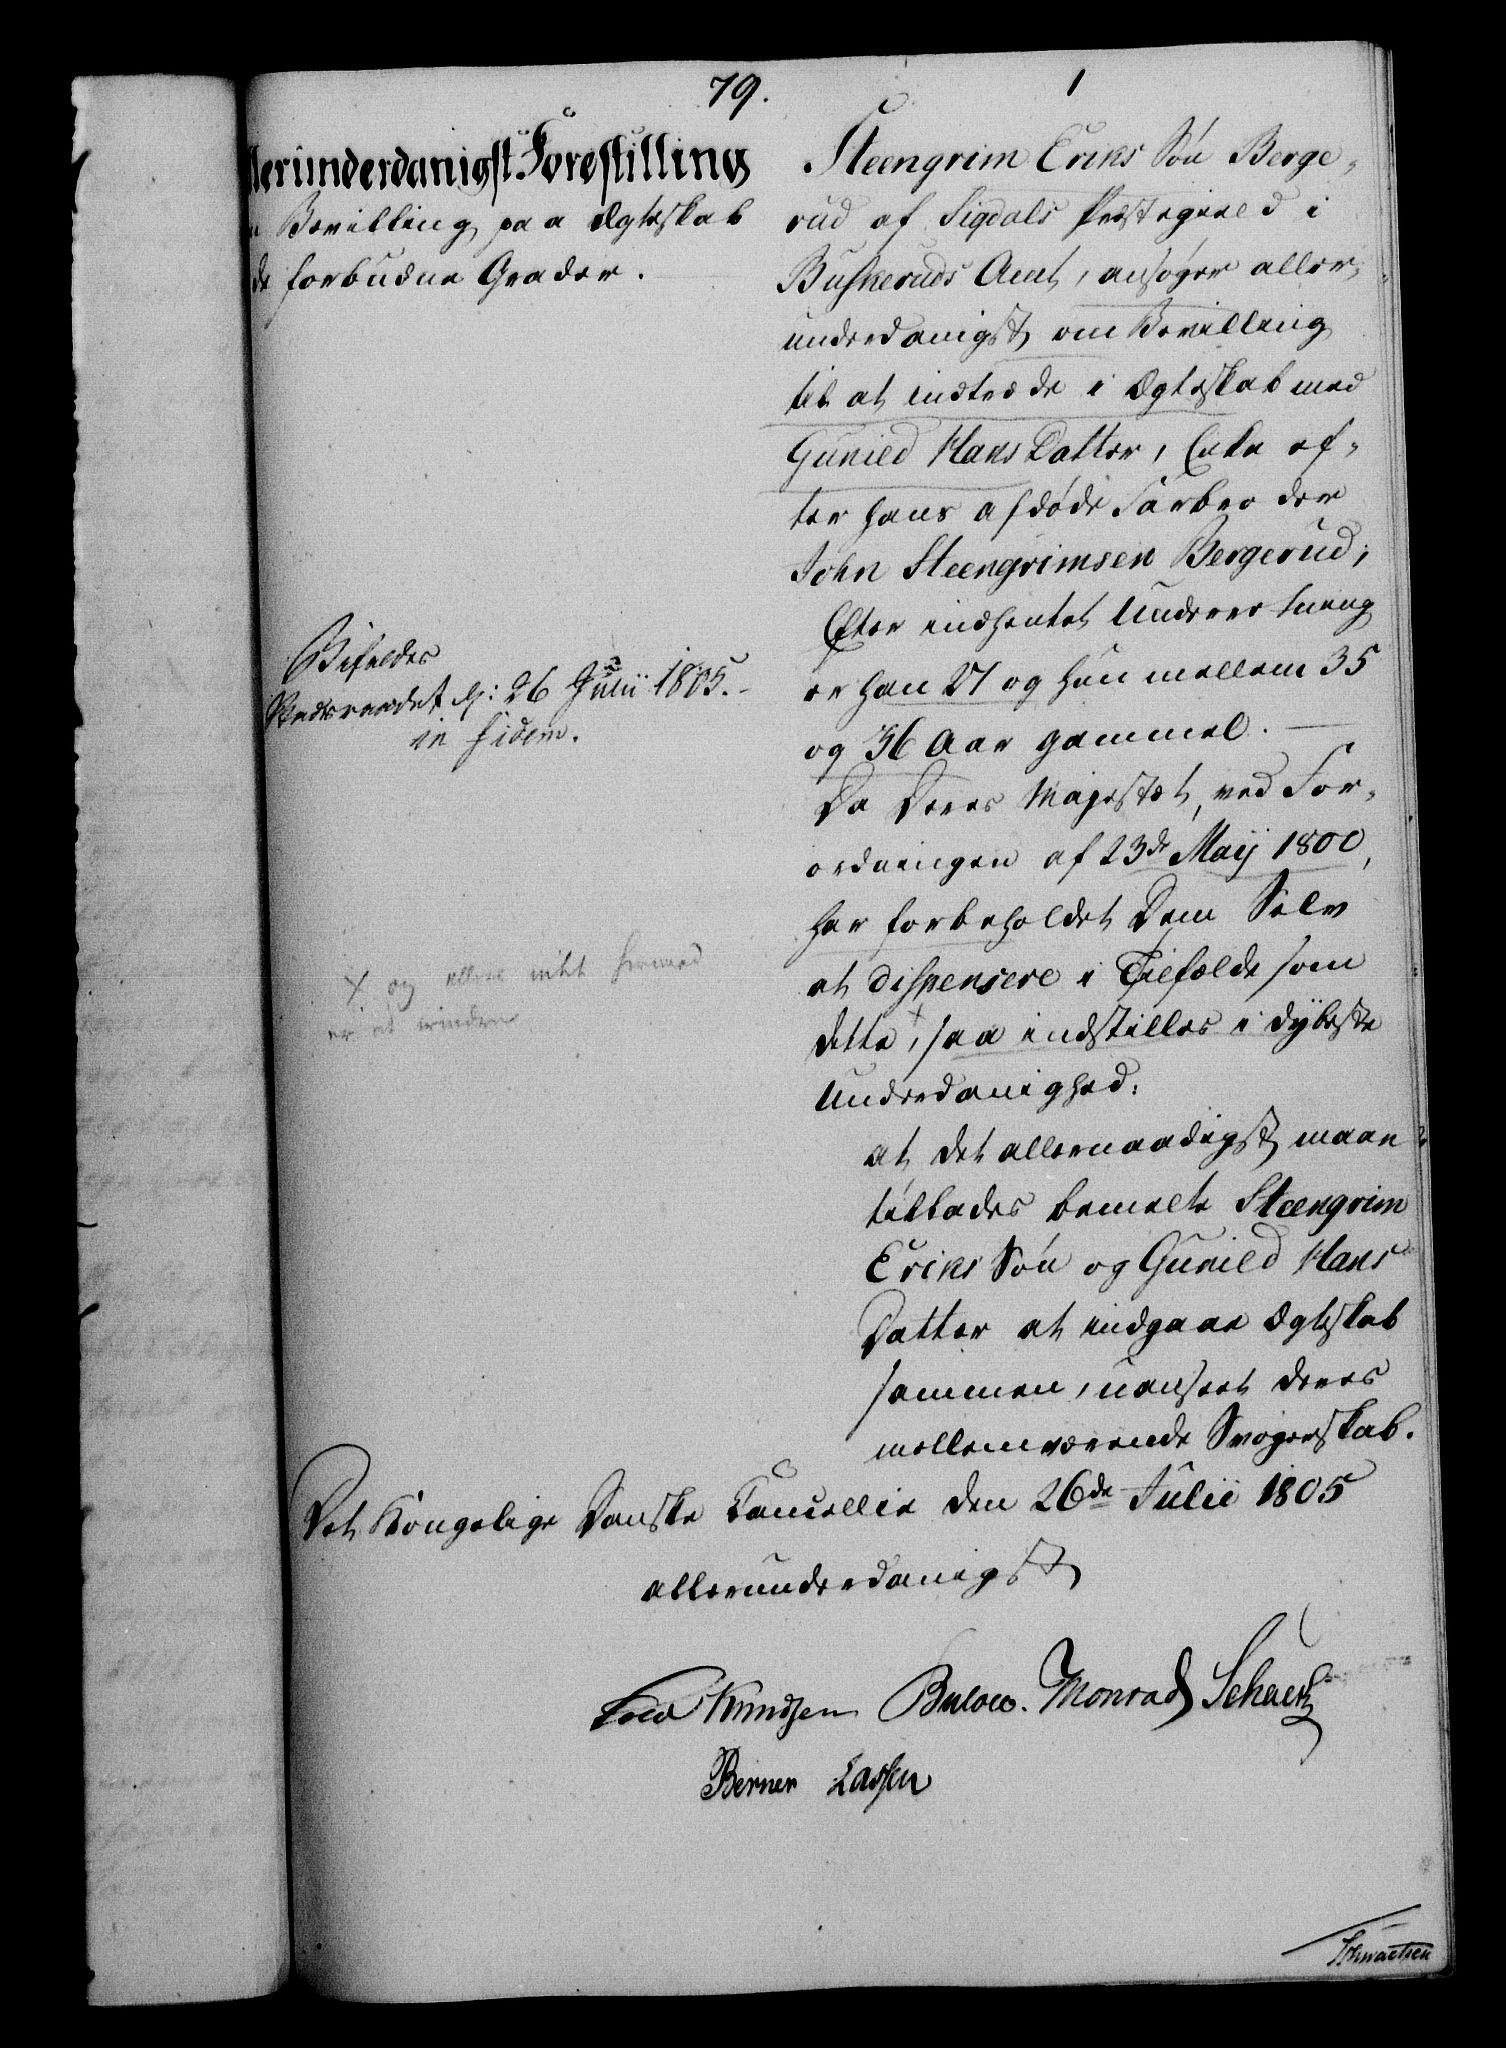 79.
1
llerunderdanigst Forestilling
Bevilling paa Ægteskab
de forbudne Grader.
Steengrim Eriks Søn Berge-
rud af Sigdals Præstegield i
Buskeruds Amt, ansøger aller-
underdanigst om Bevilling
til at indtræde i Ægteskab med
Gunild Hans Datter, Enke ef-
ter hans afdøde Farbroder
John Steengrimsen Bergerud;
Efter indhentet Underretning
er han 27 og hun mellem 35
og 36 Aar gammel.
Da Deres Majestæt, ved For-
ordningen af 23de Maij 1800,
har forbeholdet Dem Selv
at dispensere i Tilfælde som
dette, saa indstilles i dybeste
Underdanighed:
at det allernaadigst maae
tillades bemelte Steengrim
Eriks Søn og Gunild Hans
Datter at indgaae Ægteskab
sammen, uanseet deres
mellemværende Svogerskab.
Bifaldes
Statsraadet d: 26 Julii 1805.
in fidem.
x og ellers intet hermed
er at erindre
Det Kongelige Danske Cancellie den 26de Julii 1805
allerunderdanigst
Knudsen Bülow. Monrad
Berner Lassen